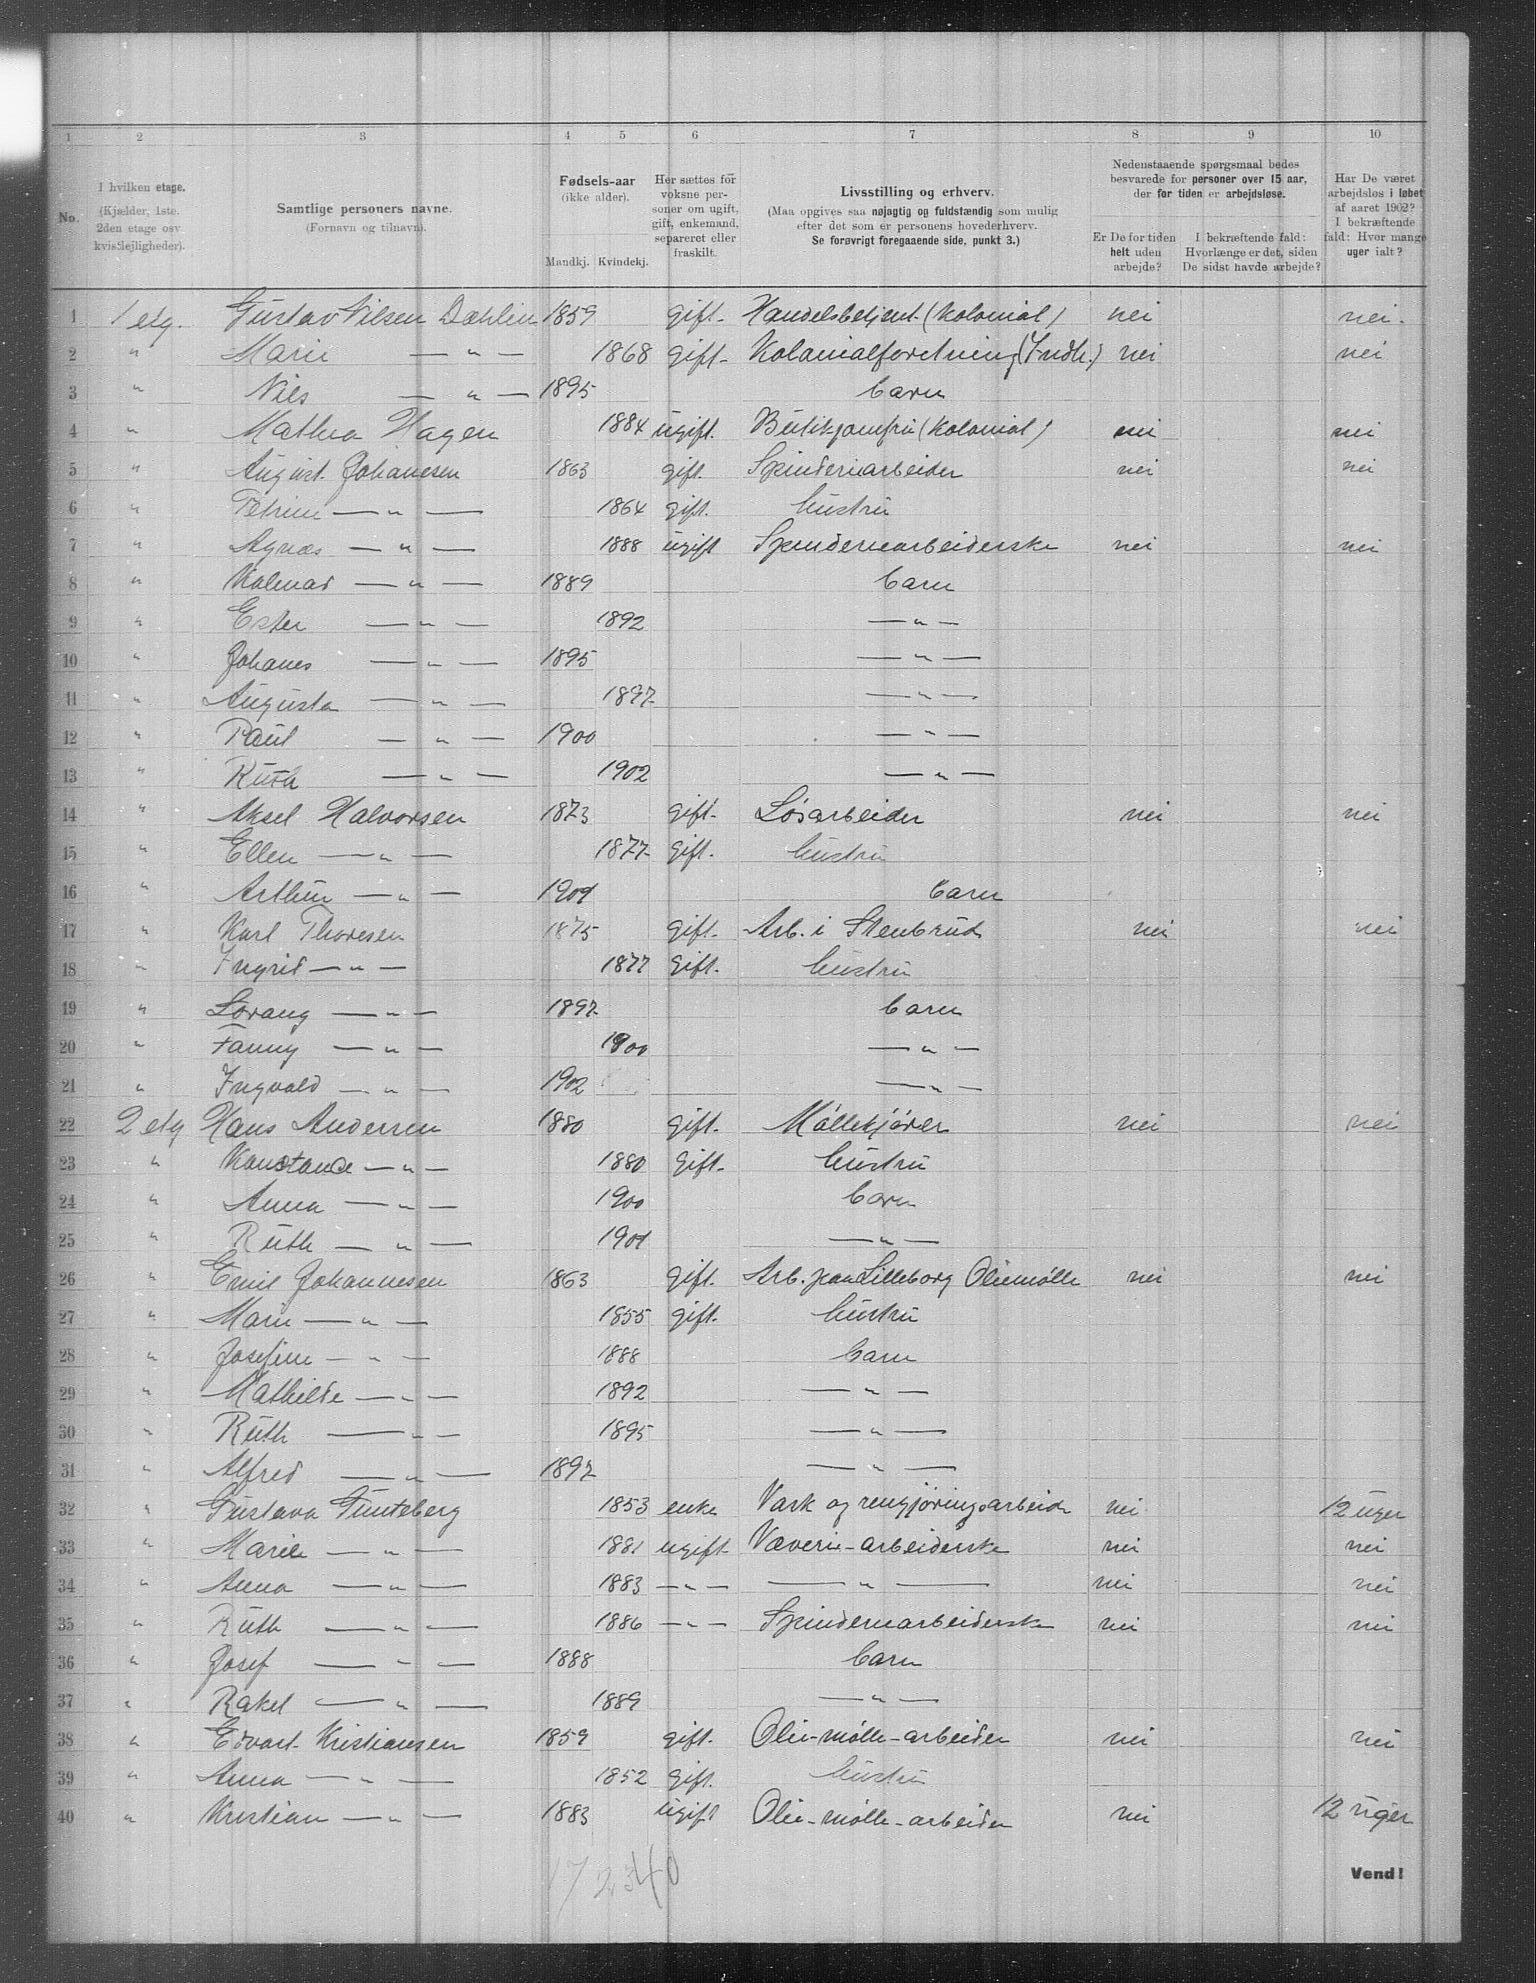 1 2 3 4 5 6 7 8 9 10
No.
I hvilken etage.
(Kjælder, 1ste.
2den etage osv.
kvistlejligheder).
Samtlige personers navne.
(Fornavn og tilnavn).
Fødsels-aar
(ikke alder).
Mandkj. Kvindekj.
Her sættes for
voksne per-
soner om ugift,
gift, enkemand,
separeret eller
fraskilt.
Livsstilling og erhverv.
(Maa opgives saa nøjagtig og fuldstændig som mulig
efter det som er personens hovederhverv.
Se forøvrigt foregaaende side, punkt 3.)
Nedenstaaende spørgsmaal bedes
besvarede for personer over 15 aar,
der for tiden er arbejdsløse.
Er De for tiden
helt uden
arbejde?
I bekræftende fald:
Hvorlænge er det, siden
De sidst havde arbejde?
Har De været
arbejdsløs i løbet
af aaret 1902?
I bekræftende
fald: Hvor mange
uger ialt?
1 1 etg. Gustav Nilsen Dahlin 1859 gift. Handelsbetjent (Kolonial) nei nei.
2 " Marie — " — 1868 gift. Kolonialforetning (Indh.) nei nei
3 " Nils — " — 1895 barn
4 " Mathea Hagen 1884 ugift. Butikjomfru (Kolonial) nei nei
5 " August Johanesen 1863 gift. Spinderiarbeider nei nei
6 " Petrine — " — 1864 gift. hustru
7 " Agnæs — " — 1888 ugift Spinderiearbeiderske nei nei
8 " Kolmar — " — 1889 barn
9 " Ester — " — 1892 — " —
10 " Johanes — " — 1895 — " —
11 " Augusta — " — 1897 — " —
12 " Paul — " — 1900 — " —
13 " Ruth — " — 1902 — " —
14 " Aksel Halvorsen 1873 gift. Løsarbeider nei nei
15 " Ellen — " — 1877 gift. hustru
16 " Arthur — " — 1901 barn
17 " Karl Thoresen 1875 gift. Arb. i Stenbrud nei nei
18 " Ingrid — " — 1877 gift. hustru
19 " Lorang — " — 1897 barn
20 " Fanny — " — 1900 — " —
21 " Ingvald — " — 1902 — " —
22 2 etg Hans Andersen 1880 gift. Møllekjører nei nei
23 " Konstance — " — 1880 gift. hustru
24 " Anna — " — 1900 barn
25 " Ruth — " — 1901 — " —
26 " Emil Johannesen 1863 gift. Arb. paa Lilleborg Oliemølle nei nei
27 " Marie — " — 1855 gift. hustru
28 " Josefine — " — 1888 barn
29 " Mathilde — " — 1892 — " —
30 " Ruth — " — 1895 — " —
31 " Alfred — " — 1897 — " —
32 " Gustava 1853 enke Vask og rengjøringsarbeide nei 12 uger
33 " Marie — " — 1881 ugift. Væveri-arbeiderske nei nei
34 " Anna — " — 1883 — " — — " — nei nei
35 " Ruth — " — 1886 — " — Spinderiearbeiderske nei nei
36 " Josef — " — 1888 barn
37 " Rakel — " — 1889 — " —
38 " Edvart Kristiansen 1859 gift. Olie-mølle-arbeider nei nei
39 " Anna — " — 1852 gift. hustru
40 " Kristian — " — 1883 ugift Olie-mølle-arbeider nei 12 uger
17 23 40
Vend!